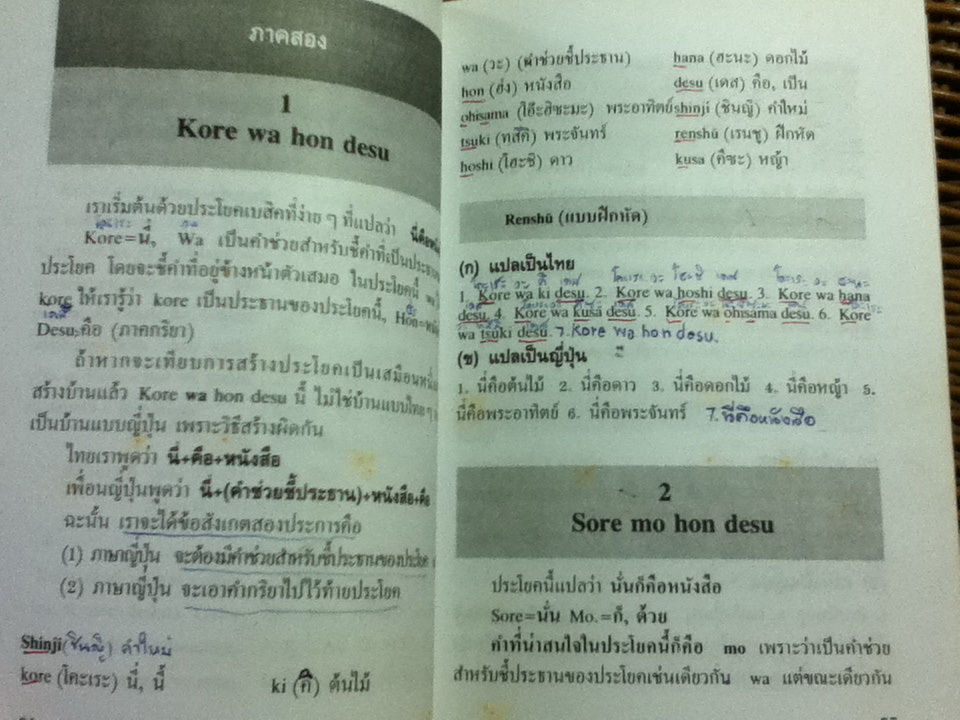 ภาคสอง
1
Kore wa hon desu
เราเริ่มต้นด้วยประโยคเบสิคที่ง่าย ๆ ที่แปลว่า นี่คือ
Kore=นี่, Wa เป็นคำช่วยสำหรับชี้คำที่เป็นประธาน
ประโยค โดยจะชี้คำที่อยู่ข้างหน้าตัวเสมอ ในประโยคนี้ wa
kore ให้เรารู้ว่า kore เป็นประธานของประโยคนี้, Hon=
Desu=คือ (ภาคกริยา)
ถ้าหากจะเทียบการสร้างประโยคเป็นเสมือน
สร้างบ้านแล้ว Kore wa hon desu นี้ ไม่ใช่บ้านแบบไทยๆ
เป็นบ้านแบบญี่ปุ่น เพราะวิธีสร้างผิดกัน
ไทยเราพูดว่า นี่+คือ+หนังสือ
เพื่อนญี่ปุ่นพูดว่า นี่+(คำช่วยชี้ประธาน)+หนังสือ+คือ
ฉะนั้น เราจะได้ข้อสังเกตสองประการคือ
(1) ภาษาญี่ปุ่น จะต้องมีคำช่วยสำหรับชี้ประธานของประโยค
(2) ภาษาญี่ปุ่น จะเอาคำกริยาไปไว้ท้ายประโยค
Shinji (ชินญิ) คำใหม่
kore (โคะเระ) นี่, นี้ ki (คี) ต้นไม้
wa (วะ) (คำช่วยชี้ประธาน) hana (ฮะนะ) ดอกไม้
hon (ฮ่ง) หนังสือ desu (เดส) คือ, เป็น
ohisama (โอ๊ะฮิซะมะ) พระอาทิตย์ shinji (ชินญิ) คำใหม่
tsuki (ทสึคิ) พระจันทร์ renshū (เรนชู) ฝึกหัด
hoshi (โฮะชิ) ดาว kusa (คึซะ) หญ้า
Renshū (แบบฝึกหัด)
(ก) แปลเป็นไทย
1. Kore wa ki desu. 2. Kore wa hoshi desu. 3. Kore wa hana
desu. 4. Kore wa kusa desu. 5. Kore wa ohisama desu. 6. Kore
wa tsuki desu. 7. Kore wa hon desu.
(ข) แปลเป็นญี่ปุ่น
1. นี่คือต้นไม้ 2. นี่คือดาว 3. นี่คือดอกไม้ 4. นี่คือหญ้า 5.
นี่คือพระอาทิตย์ 6. นี่คือพระจันทร์ 7. นี่คือหนังสือ
2
Sore mo hon desu
ประโยคนี้แปลว่า นั่นก็คือหนังสือ
Sore=นั่น Mo.=ก็, ด้วย
คำที่น่าสนใจในประโยคนี้ก็คือ mo เพราะว่าเป็นคำช่วย
สำหรับชี้ประธานของประโยคเช่นเดียวกัน wa แต่ขณะเดียวกัน